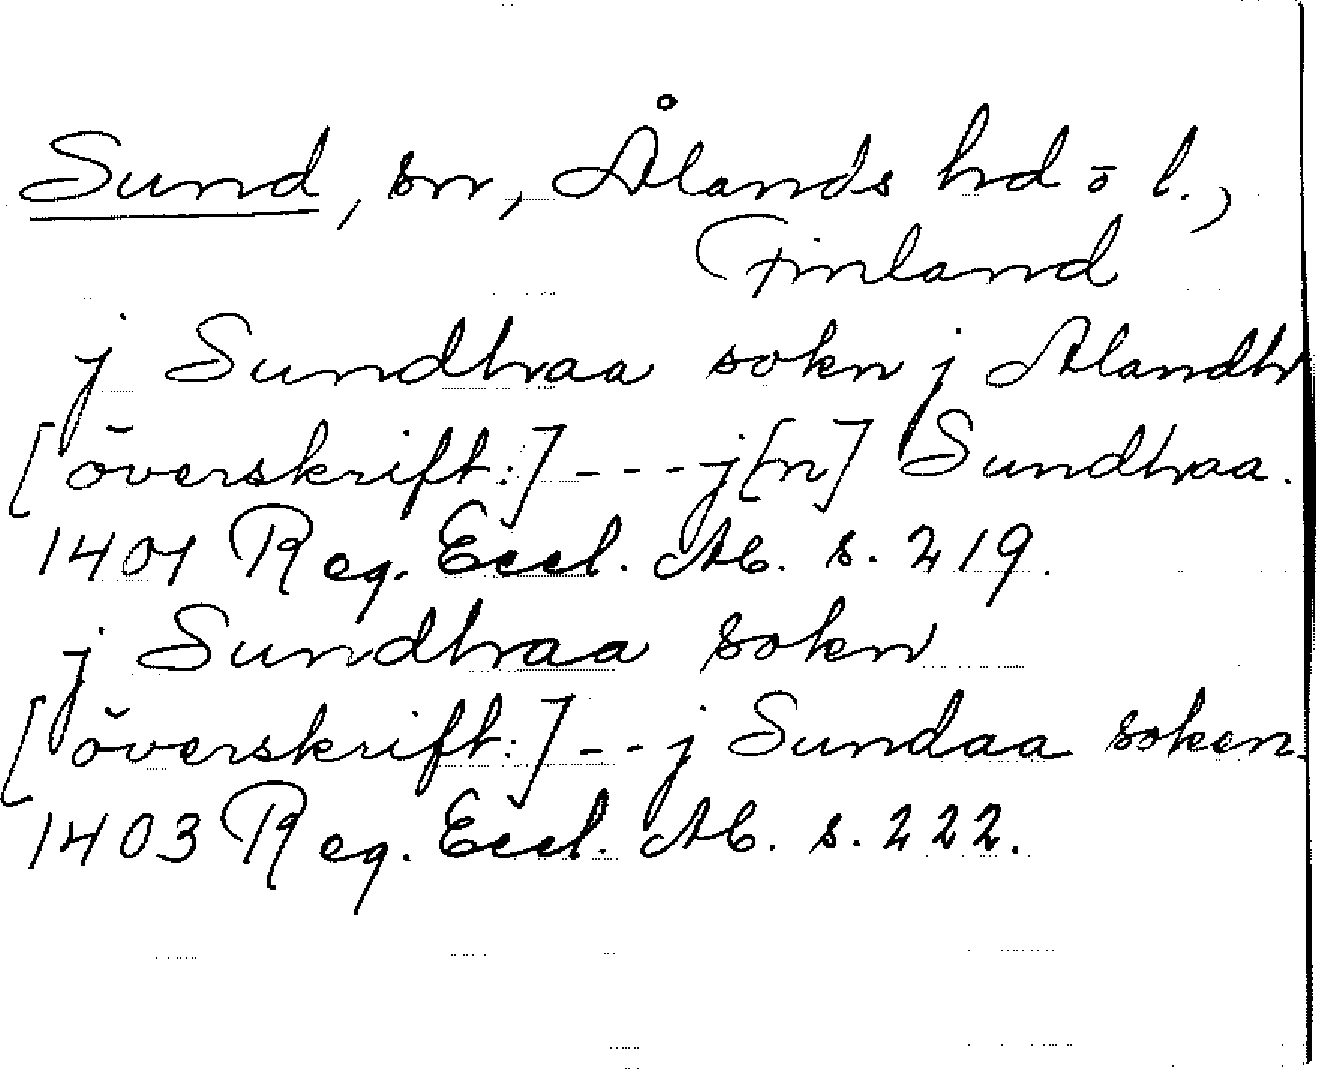 Sund, sn, Ålands hd o l.,
Finland
j Sundhraa sokn j Alandh
[överskrift:] - - - j[n] Sundhraa.
1401 Reg. Eccl. Ab. s. 219.
j Sundhraa sokn
[överskrift:] - - j Sundaa soken
1403 Reg. Eccl. Ab. s. 222.